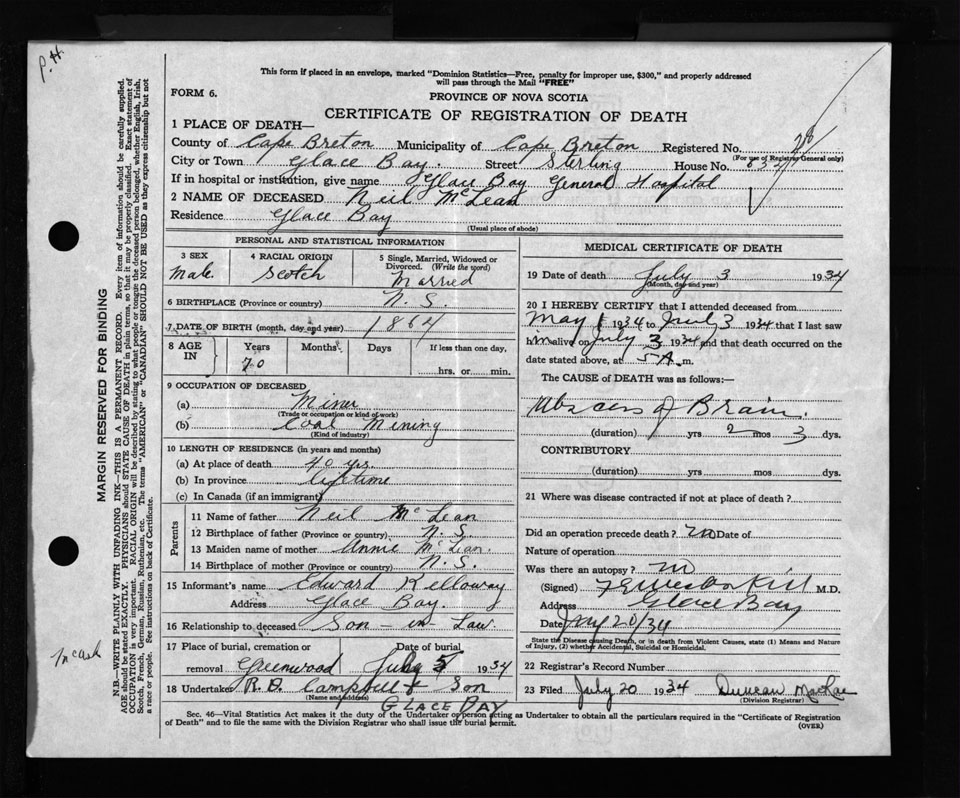 P.H.
This form if placed in an envelope, marked "Dominion Statistics—Free, penalty for improper use, $300," and properly addressed
will pass through the Mail "FREE"
FORM 6.
PROVINCE OF NOVA SCOTIA
CERTIFICATE OF REGISTRATION OF DEATH
1 PLACE OF DEATH—
County of Cape Breton Municipality of Cape Breton Registered No.
(For use of Registrar General only)
City or Town Glace Bay. Street Sterling House No.
If in hospital or institution, give name Glace Bay General Hospital
2 NAME OF DECEASED Neil McLean
Residence Glace Bay
(Usual place of abode)
PERSONAL AND STATISTICAL INFORMATION
3 SEX 4 RACIAL ORIGIN 5 Single, Married, Widowed or
Divorced. (Write the word)
Male Scotch Married
6 BIRTHPLACE (Province or country) N. S.
7 DATE OF BIRTH (month, day and year) 1864
8 AGE IN Years Months Days If less than one day,
70 hrs. or min.
9 OCCUPATION OF DECEASED
(a) Miner
(Trade or occupation or kind of work)
(b) Coal Mining
(Kind of industry)
10 LENGTH OF RESIDENCE (in years and months)
(a) At place of death 40 yrs
(b) In province lifetime
(c) In Canada (if an immigrant)
Parents
11 Name of father Neil McLean
12 Birthplace of father (Province or country) N. S.
13 Maiden name of mother Annie McLean.
14 Birthplace of mother (Province or country) N. S.
15 Informant's name Edward Kelloway
Address Glace Bay.
16 Relationship to deceased Son-in-Law
17 Place of burial, cremation or Date of burial
removal Greenwood July 5 1934
18 Undertaker R. D. Campbell & Son
(Name and address)
GLACE BAY
MEDICAL CERTIFICATE OF DEATH
19 Date of death July 3 1934
(Month, day and year)
20 I HEREBY CERTIFY that I attended deceased from
May 1 1934 to July 3 1934 that I last saw
him alive on July 3 1934 and that death occurred on
the date stated above, at 5 A. m.
The CAUSE of DEATH was as follows:—
Abscess of Brain.
(duration) yrs 2 mos 3 dys.
CONTRIBUTORY
(duration) yrs mos dys.
21 Where was disease contracted if not at place of death?
Did an operation precede death? no Date of
Nature of operation
Was there an autopsy? no
(Signed) M.D.
Address Glace Bay
Date 20/34
State the Disease causing Death, or in death from Violent Causes, state (1) Means and Nature
of Injury, (2) whether Accidental, Suicidal or Homicidal.
22 Registrar's Record Number
23 Filed July 20 1934 Duncan MacRae
(Division Registrar)
Sec. 46—Vital Statistics Act makes it the duty of the Undertaker or person acting as Undertaker to obtain all the particulars required in the "Certificate of Registration
of Death" and to file the same with the Division Registrar who shall issue the burial permit.
(OVER)
MARGIN RESERVED FOR BINDING
N.B.—WRITE PLAINLY WITH UNFADING INK—THIS IS A PERMANENT RECORD. Every item of information should be carefully supplied.
AGE should be stated EXACTLY. PHYSICIANS should STATE CAUSE OF DEATH in plain terms, so that it may be properly classified. Exact statement of
OCCUPATION is very important. RACIAL ORIGIN will be described by stating to what people or tongue the deceased person belonged, whether English, Irish,
Scotch, French, German, Russian, Ruthenian, etc. The terms "AMERICAN" or "CANADIAN" SHOULD NOT BE USED as they express citizenship but not
a race or people. See instructions on back of Certificate.